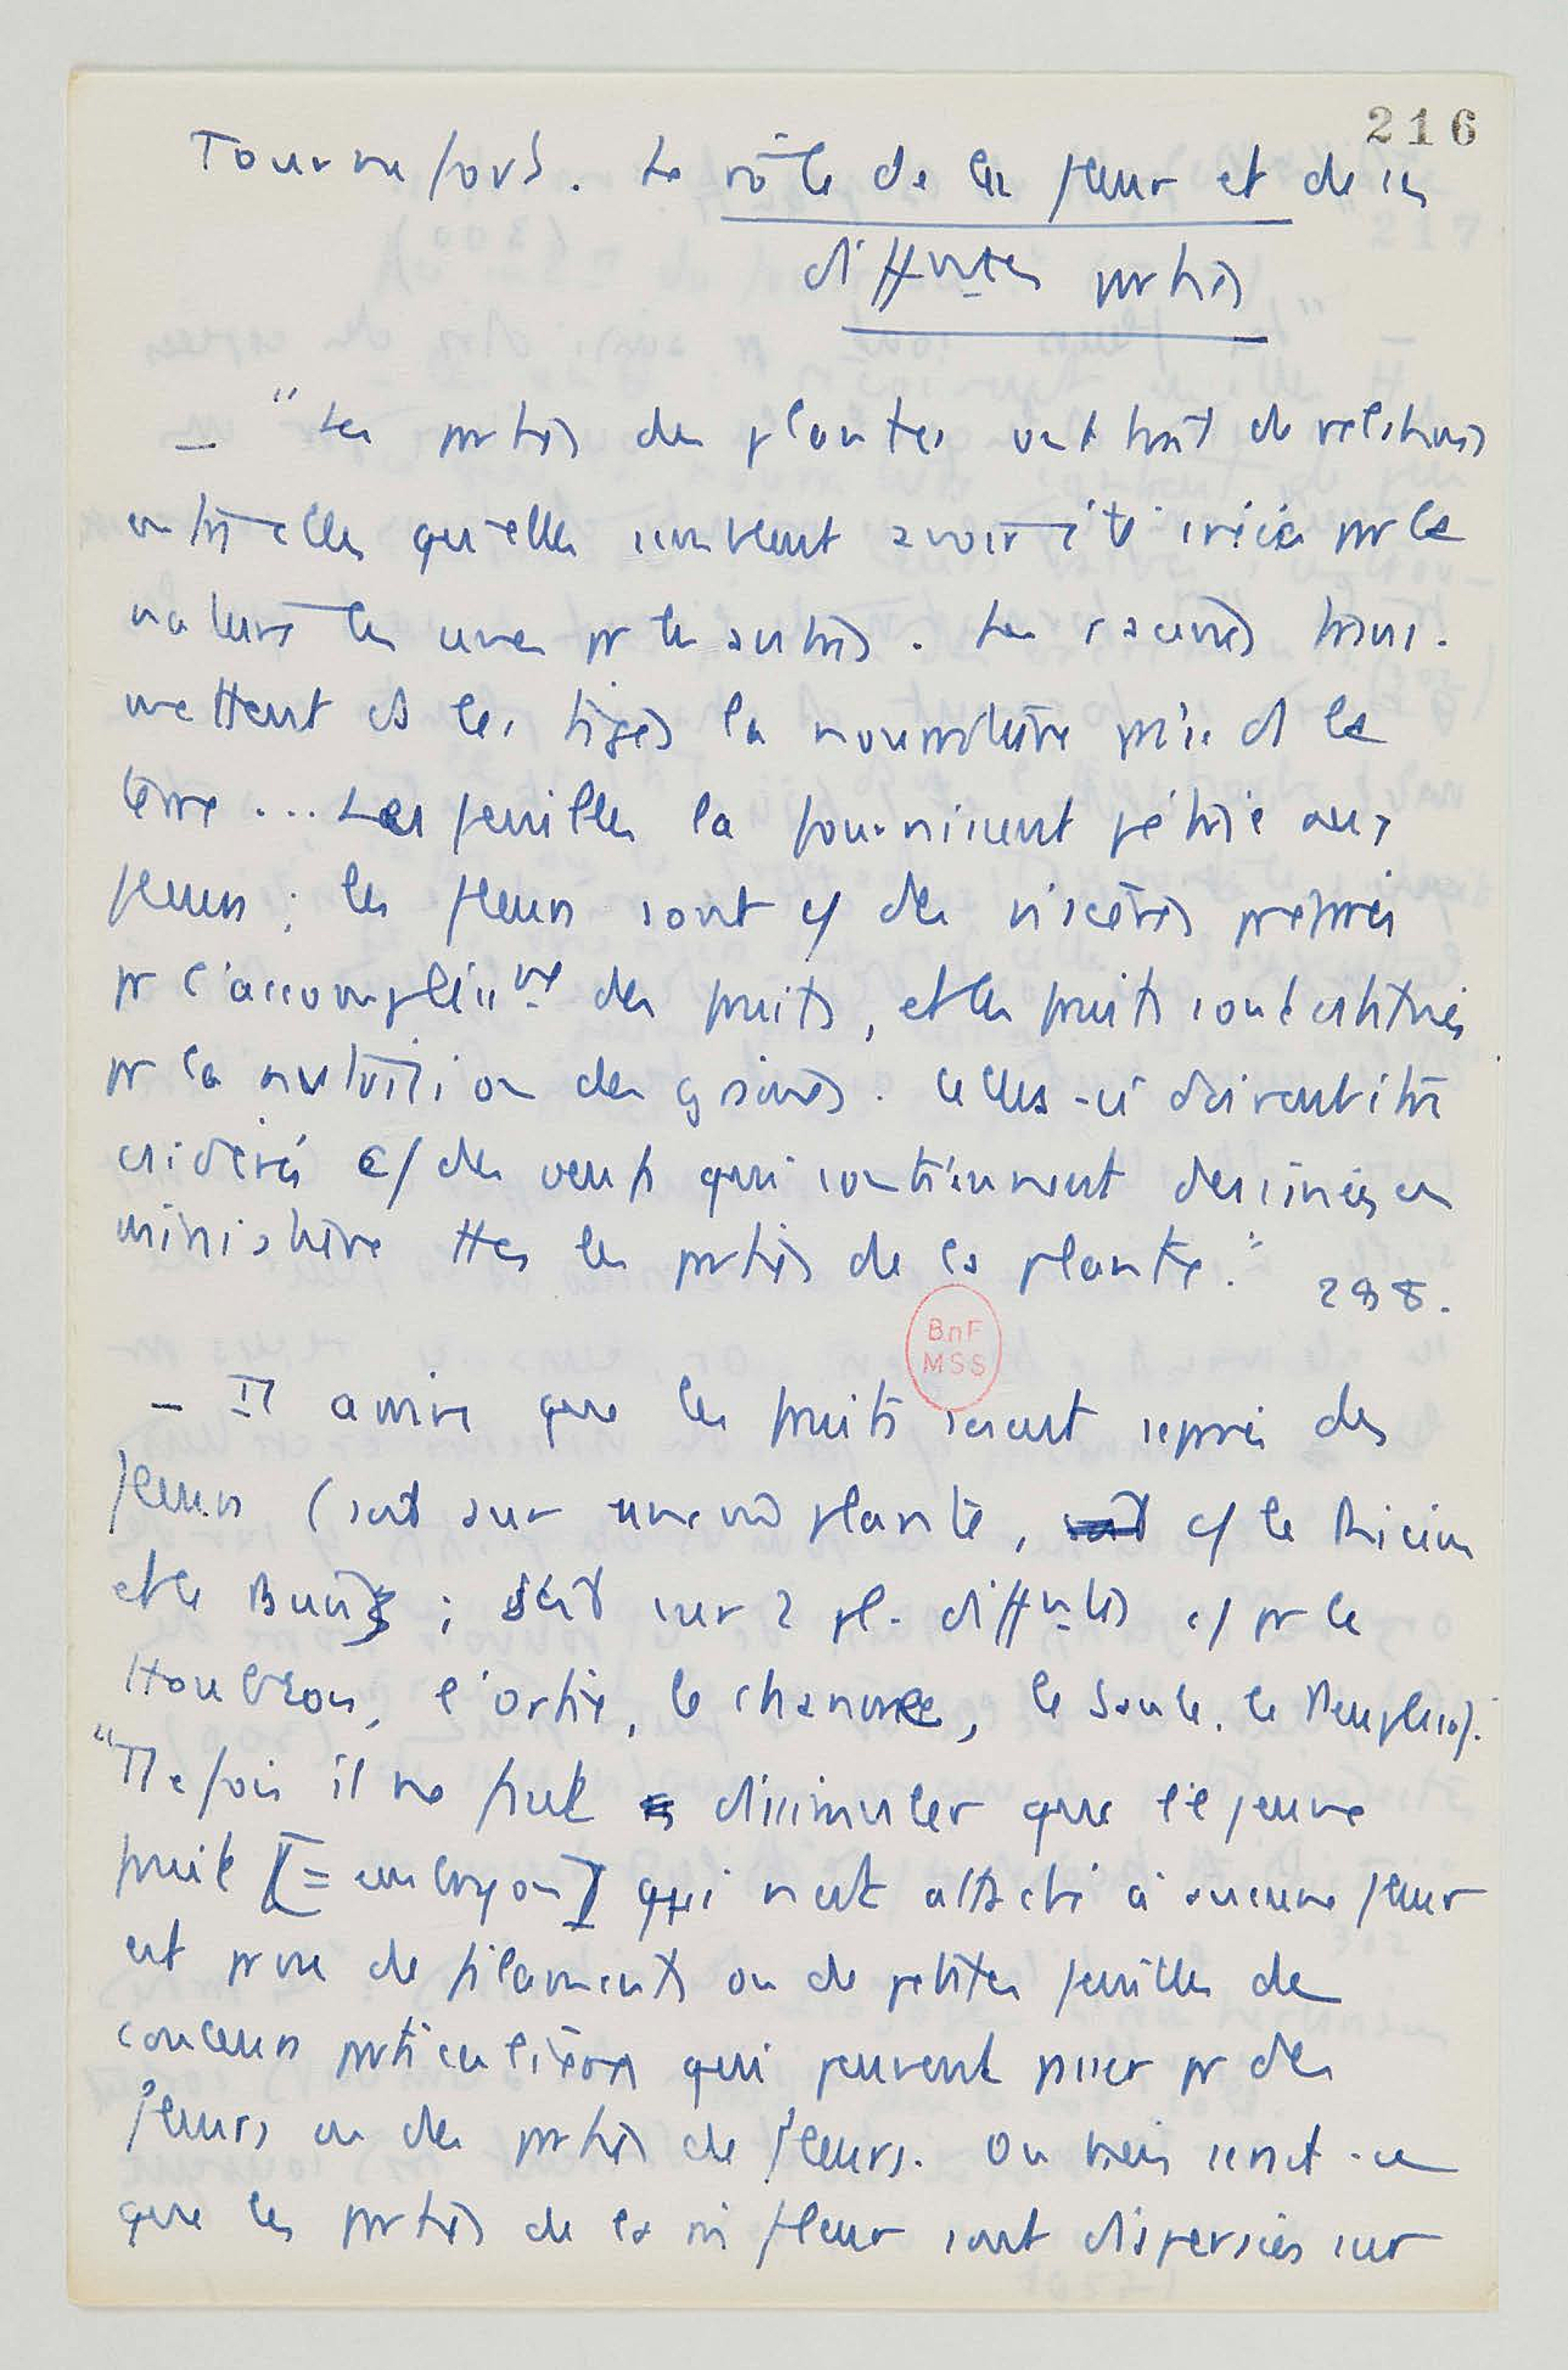 216
Tournefort. Le rôle de la fleur et de ses
diffntes parties
— "Les parties des plantes ont tant de relations
entre elles qu'elles semblent avoir été créées par la
nature les unes pr les autres. Les racines trans-
mettent ds les tiges la nourriture prise ds la
terre... Les feuilles la fournissent pétrie aux
fleurs ; les fleurs sont c/ des viscères préparés
pr l'accomplissmt des fruits, et les fruits sont destinés
pr la nutrition des graines. Celles-ci doivent être
csidérées c/ des oeufs qui contiennent dessinées en
miniature ttes les parties de la plante." 298.
BnF
MSS
— Il arrive que les fruits soient séparés des
fleurs (soit sur une mê plante, c/ le Ricin
et le Buis ; soit sur 2 pl. diffntes c/ pr le
Houblon, l'ortie, le chanvre, le Saule, le Peuplier).
"Ttefois il ne faut dissimuler que le jeune
fruit [= embryon] qui n'est attaché à aucune fleur
est orné de filaments ou de petites feuilles de
couleurs particulières qui peuvent passer pr des
fleurs ou des parties de fleurs. Ou bien serait-ce
que les parties de la mê fleur sont dispersées sur